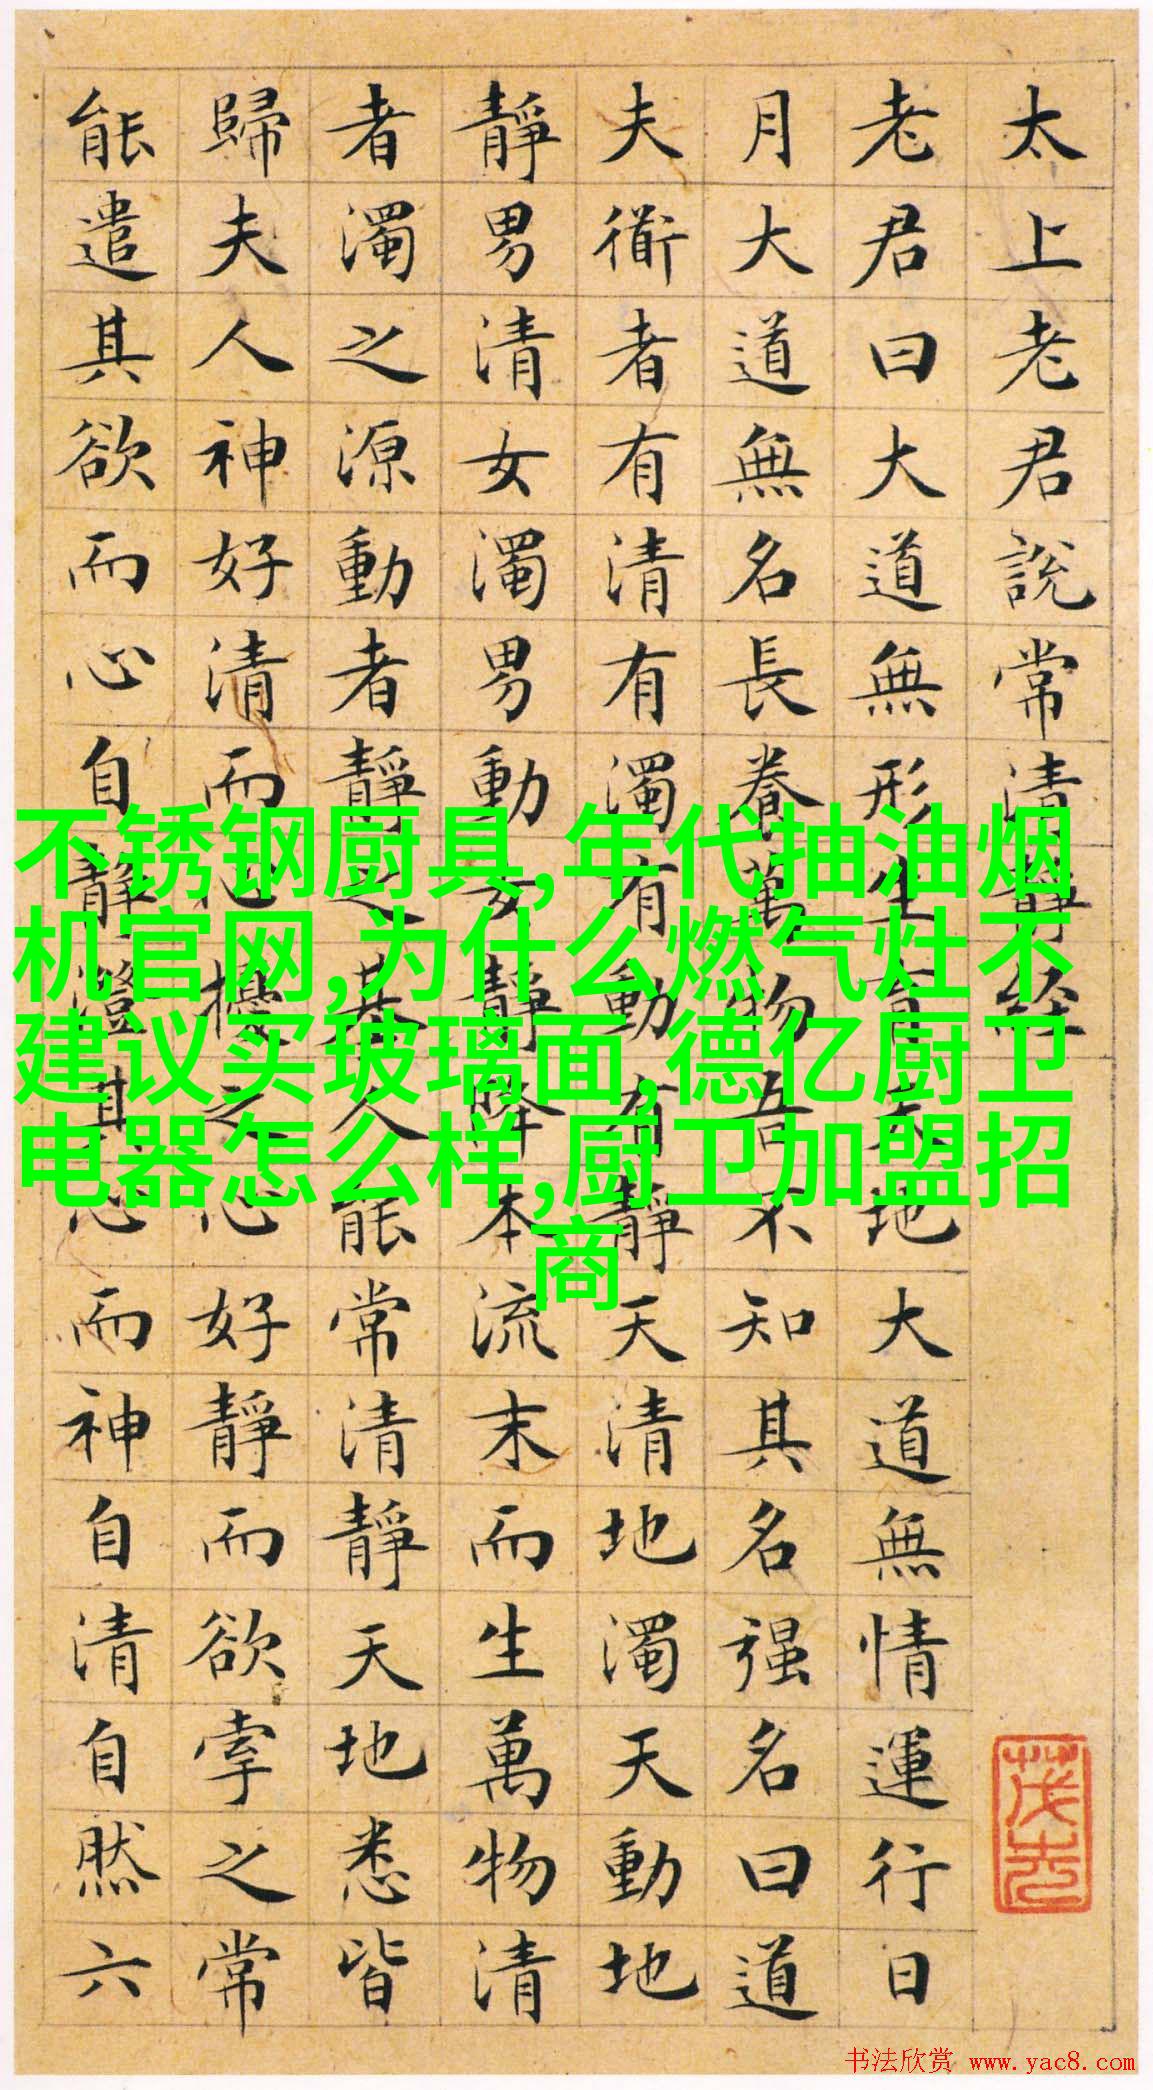 太上老君說常清靜經
老君曰大道無形生育天地大道無情運行日
月大道無名長養萬物吾不知其名强名曰道
夫衜者有清有濁有動有靜天清地濁天動地
靜男清女濁男動女靜降本流末而生萬物清
者濁之源動者靜之基人能常清靜天地悉皆
歸夫人神好清而心擾之心好靜而欲牽之常
能遣其欲而心自靜澄其心而神自清自然六
不锈钢厨具,年代抽油烟
机官网,为什么燃气灶不
建议买玻璃面,德亿厨卫
电器怎么样,厨卫加盟招
商
书法欣赏 www.yac8.com